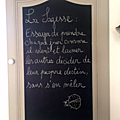 La Sagesse :
Essayer de prendre
chaque jour comme
il vient et laisser
les autres décider de
leur propre destin,
sans s'en mêler.